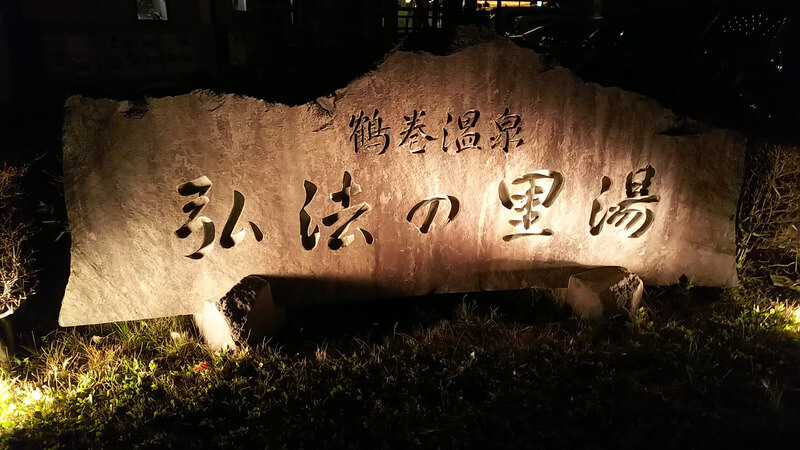 鶴巻温泉
弘法の里湯